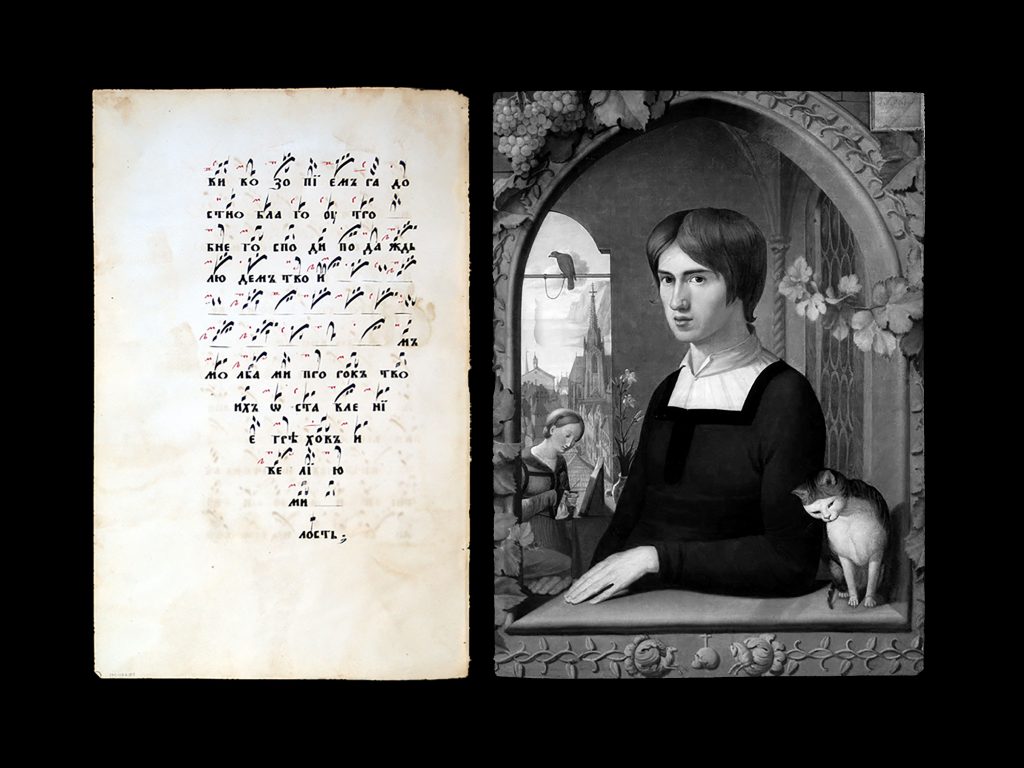 ви ко зо пї емъ га до
стно бла го оу тро
бне го спо ди по да ждь
лю демъ тво и
мъ
мо лба ми про рокъ тво
ихъ ѡ ста вле нї
е грѣ ховъ и
ве лї ю
ми
лость